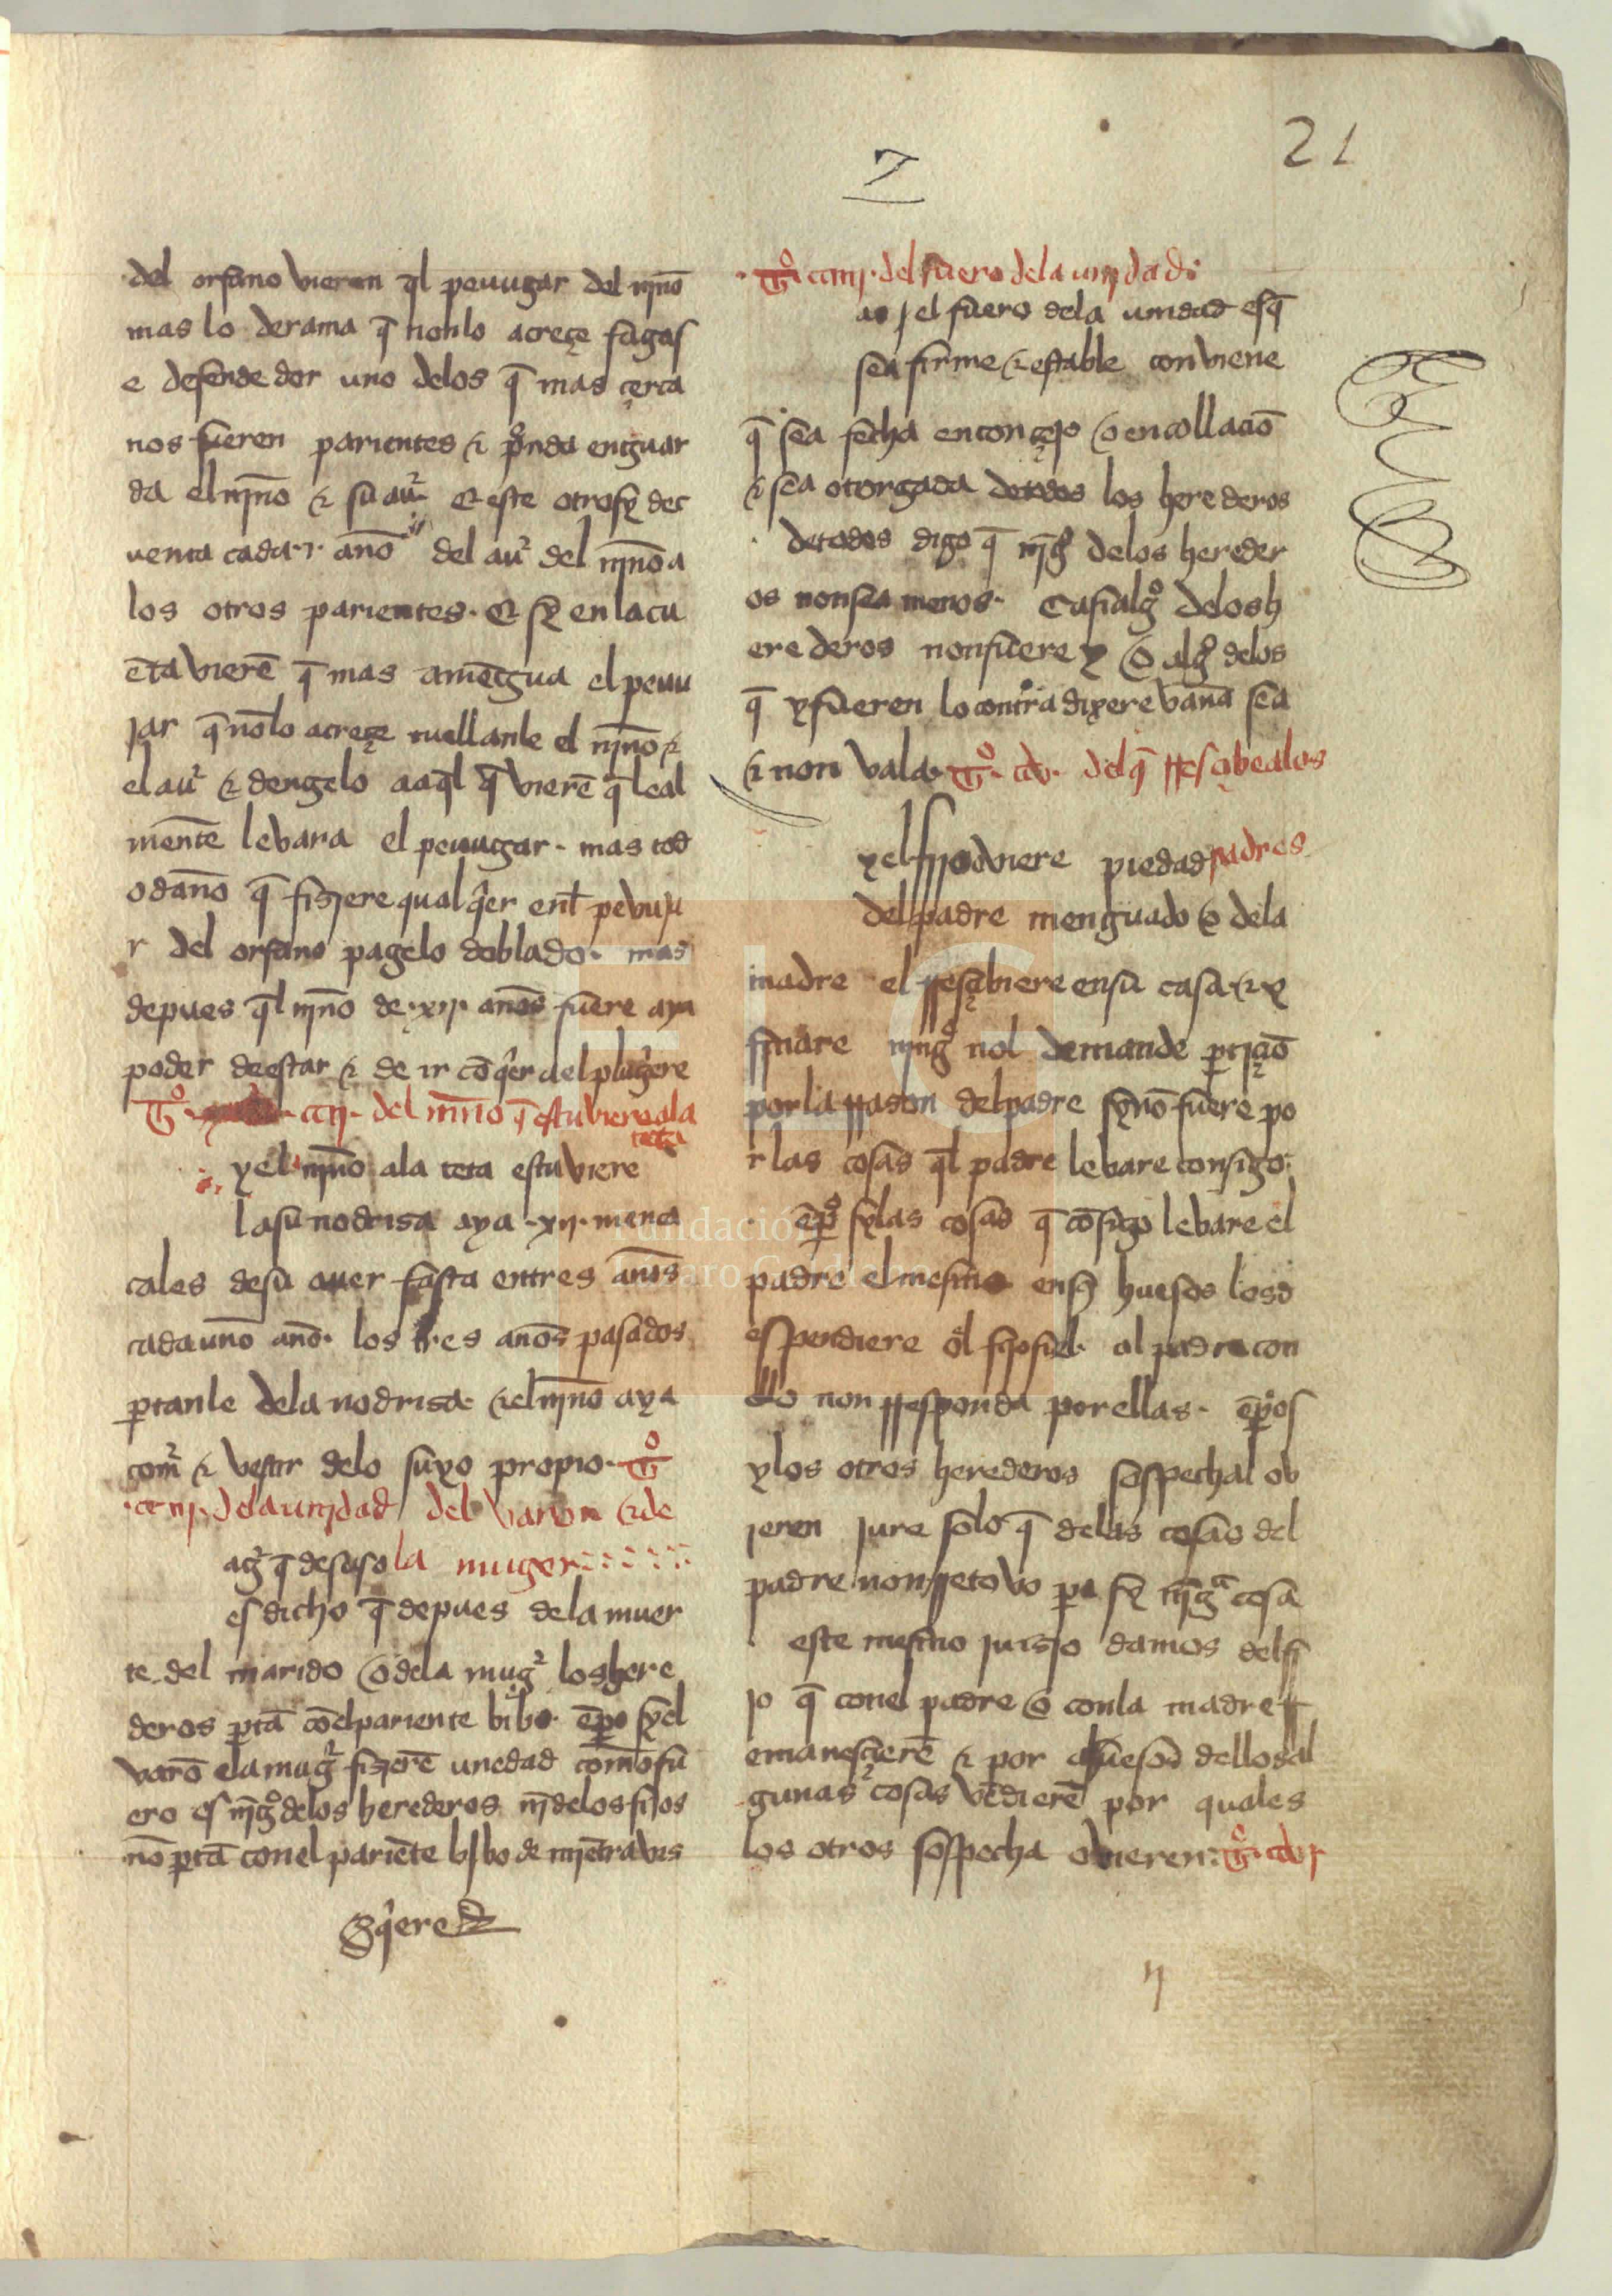 21
7
del orfano vieren q̄l peuugar del njno
mas lo derama q̄ non lo acreçe fagas
e defendedor uno delos q̄ mas çerca
nos fueren parientes & pͦnda en guar
da el njno & su au̓ & este otrosy dec
uenta cada .i. ano del au̓ del njno a
los otros parientes. & sy en la cu
ēta vierē q̄ mas amēgua el peuu
jar q̄ nōlo acreçe tuellanle el njno &
el au̓ & dengelo a aq̄l q̄ vierē q̄ leal
mente levara el peuugar. mas tod
o dano q̄ fiziere qual q̓er enl peuuja
r del orfano pagelo doblado. mas
depues q̄l njno de .xij. anos fuere aya
poder de estar & de ir cō q̓er a el plug̓ere
Tͦ. cxij. del njno q̄ estuviere ala
teta
y el njno ala teta estuviere
la su nodrisa aya .xij. menca
cales de su auer fasta en tres anos
cada uno ano. los tres anos pasados
ꝑtanle dela nodrisa. & el njno aya
com̓ & vestir delo suyo propio. Tͦ
.cxiij. dela unjdad del varon & de
ag̓ q̄ desuso la muger
es dicho q̄ depues dela muer
te del marido o dela mug̓ los here
deros ꝑtā cōel pariente bibo. ēꝑo sy el
varō e la mug̓ fizierē unedad como fu
ero es njgͦ delos herederos nj delos fijos
nō ꝑtā con el pariēte bjbo de mjētra ves
q̓ere
.Tͦ. cxiiij. del fuero dela unjdad
as j el fuero dela unidad es q̄
sea firme & estable conviene
q̄ sea fecha en conçejo o en collaciō
& sea otorgada de todos los herederos
de todos digo q̄ njgͦ delos hereder
os non sea menos. Ca si algͦ delos h
erederos non fuere y o algͦ delos
q̄ y fueren lo contradixere vana sea
& non vala. Tͦ. cxv. del q̄ rresçibe alos
y el fijo oviere piedad padres
del padre menguado o dela
madre el rresçibiere en su casa & y
finare njngͦ nol demande ꝑtiçiō
por la rrason del padre synō fuere po
r las cosas q̄l padre levare consigo.
ēꝑͦ sy las cosas q̄ cōsigo levare el
padre el mesmo en sus huesos los d
espendiere ol fijo fiel. al padre con
ello non rresponda por ellas. ēꝑͦ os
y los otros herederos sospechal ov
ieren jure solo q̄ delas cosas del
padre non rretovo ꝑa sy njgᵃ cosa
este mesmo juizjo damos del fi
jo q̄ con el padre o con la madre rr
emanesçierē & por a huesos dellos al
gunas cosas vēdierē por quales
los otros sospecha ovieren: Tͦ. cxvj